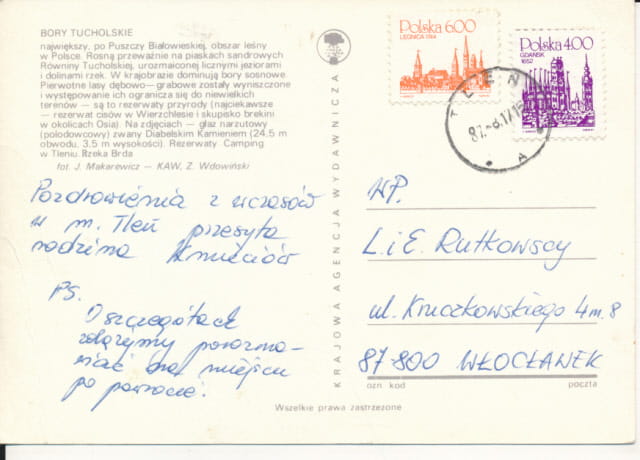 BORY TUCHOLSKIE
największy, po Puszczy Białowieskiej, obszar leśny
w Polsce. Rosną przeważnie na piaskach sandrowych
Równiny Tucholskiej, urozmaiconej licznymi jeziorami
i dolinami rzek. W krajobrazie dominują bory sosnowe.
Pierwotne lasy dębowo–grabowe zostały wyniszczone
i występowanie ich ogranicza się do niewielkich
terenów — są to rezerwaty przyrody (najciekawsze
— rezerwat cisów w Wierzchlesie i skupisko brekini
w okolicach Osia). Na zdjęciach — głaz narzutowy
(polodowcowy) zwany Diabelskim Kamieniem (24,5 m
obwodu, 3,5 m wysokości). Rezerwaty. Camping
w Tleniu. Rzeka Brda
fot. J. Makarewicz — KAW, Z. Wdowiński
Pozdrowienia z wczasów
w m. Tleń przesyła
rodzina
PS.
O szczegółach
zdążymy porozma-
wiać na miejscu
po powrocie.
KRAJOWA AGENCJA WYDAWNICZA
Polska 6.00
LEGNICA 1744
Polska 4.00
GDAŃSK
1652
TLEŃ
A
WP.
L. i E. Rutkowscy
ul. Kruczkowskiego 4 m. 8
87-800 WŁOCŁAWEK
ozn kod poczta
Wszelkie prawa zastrzeżone